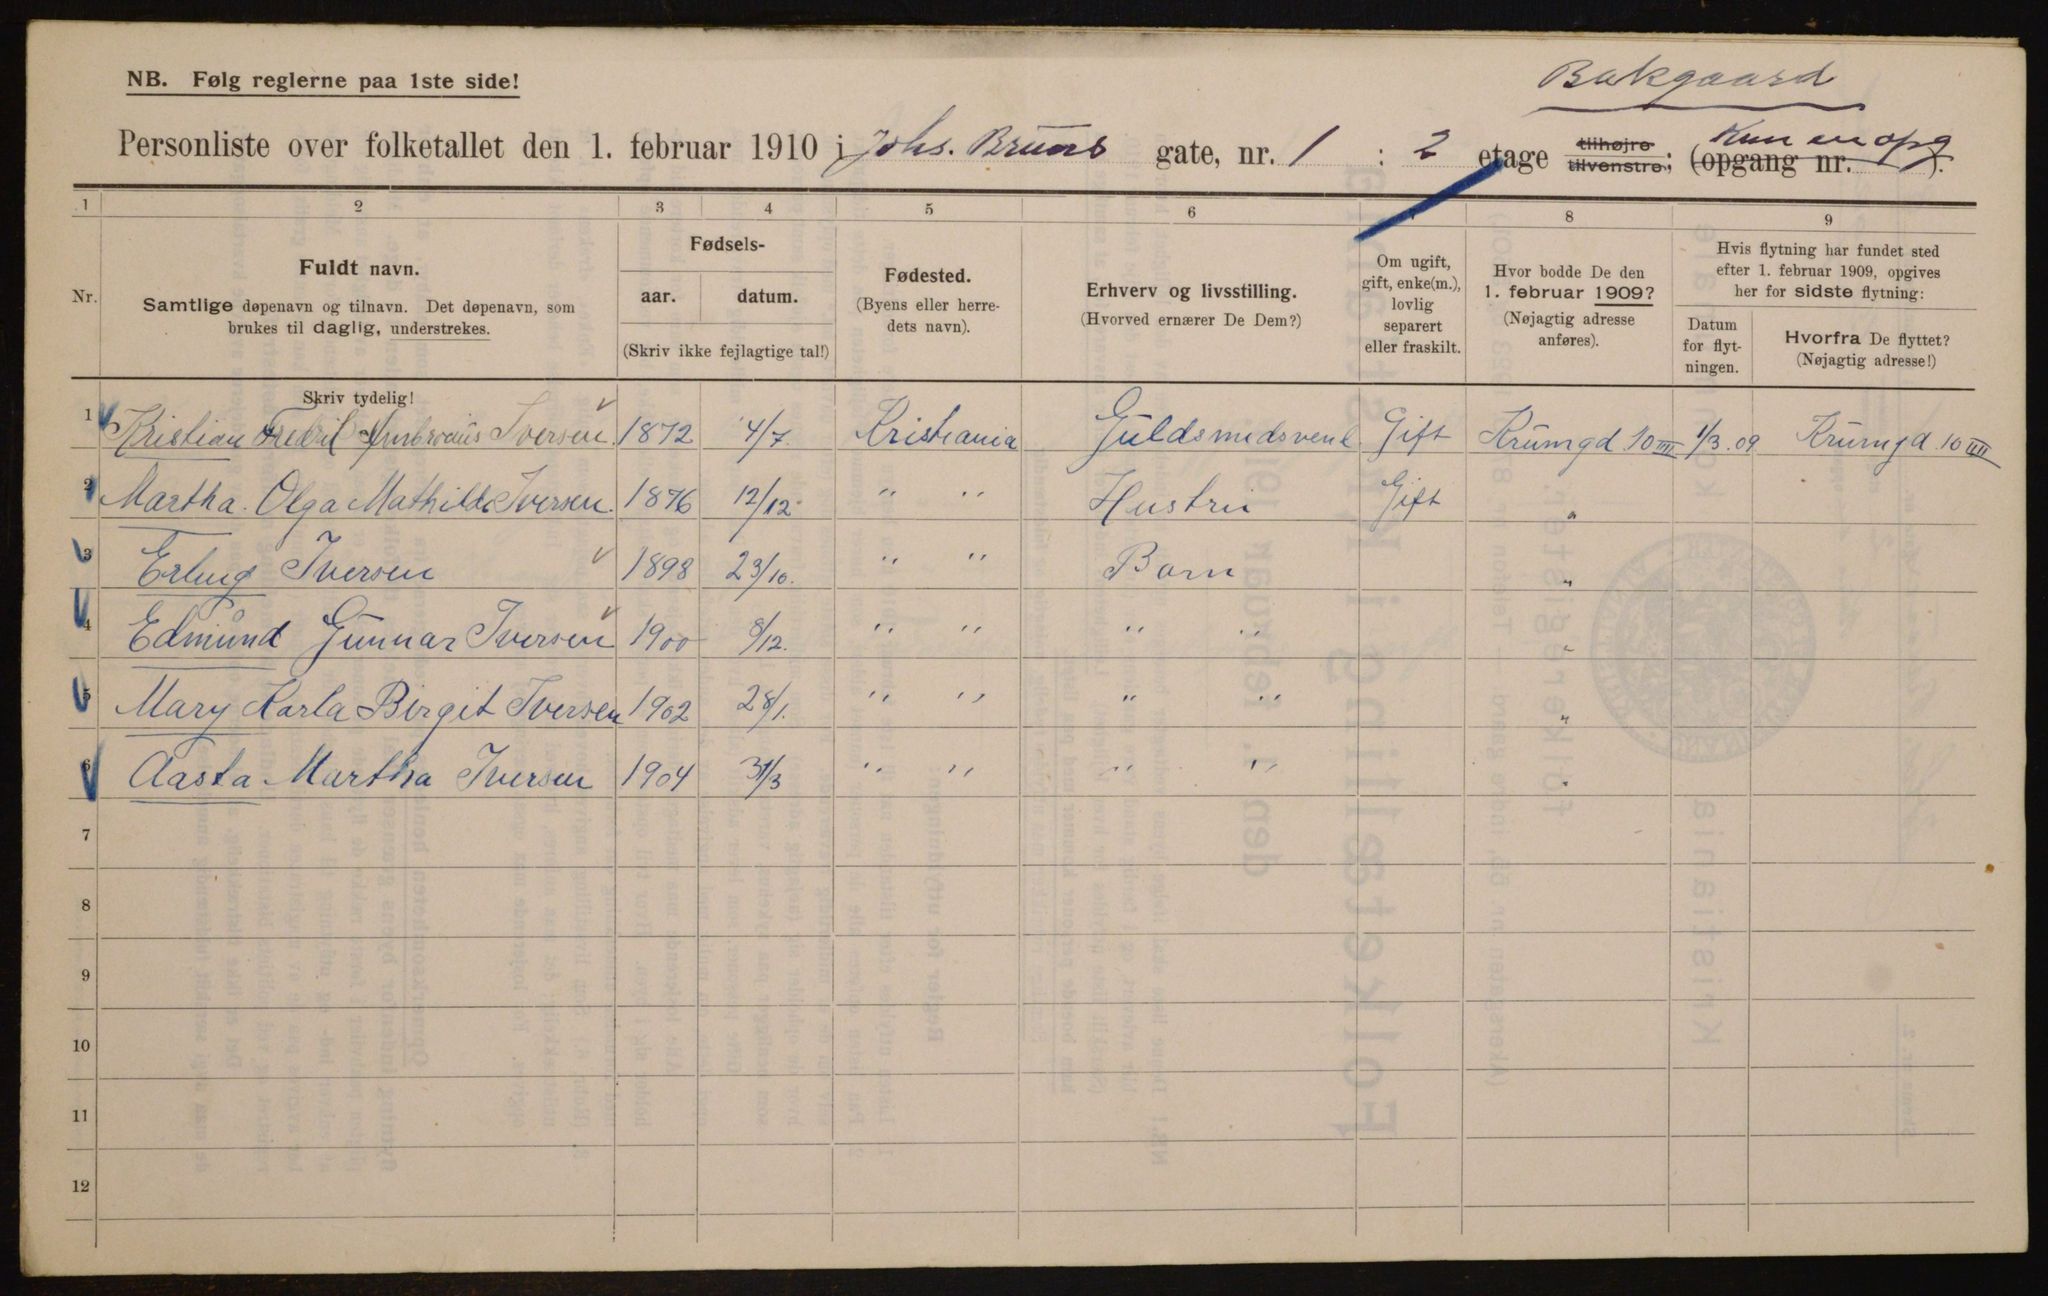 Bakgaard
NB. Følg reglerne paa 1ste side!
Personliste over folketallet den 1. februar 1910 i Johs. Bruns gate, nr. 1 : 2 etage tilhøjre tilvenstre; (opgang nr. ). Kun en opg
1 2 3 4 5 6 8 9
Nr.
Fuldt navn.
Samtlige døpenavn og tilnavn. Det døpenavn, som
brukes til daglig, understrekes.
Fødsels-
aar. datum.
(Skriv ikke fejlagtige tal!)
Fødested.
(Byens eller herre-
dets navn).
Erhverv og livsstilling.
(Hvorved ernærer De Dem?)
Om ugift,
gift, enke(m.),
lovlig
separert
eller fraskilt.
Hvor bodde De den
1. februar 1909?
(Nøjagtig adresse
anføres).
Hvis flytning har fundet sted
efter 1. februar 1909, opgives
her for sidste flytning:
Datum
for flyt-
ningen.
Hvorfra De flyttet?
(Nøjagtig adresse!)
Skriv tydelig!
1 Kristian Fredrik Iversen 1872 4/7. Kristiania Guldsmedsvend Gift Krumgd 10 III 1/3 09 Krumgd 10 III
2 Martha Olga Mathilde Iversen. 1876 12/12. " " Hustru Gift "
3 Erling Iversen 1898 23/10. " " Barn "
4 Edmund Gunnar Iversen 1900 8/12. " " " " "
5 Mary Karla Birgit Iversen 1902 28/1. " " " " "
6 Aasta Martha Iversen 1904 31/3 " " " " "
7
8
9
10
11
12